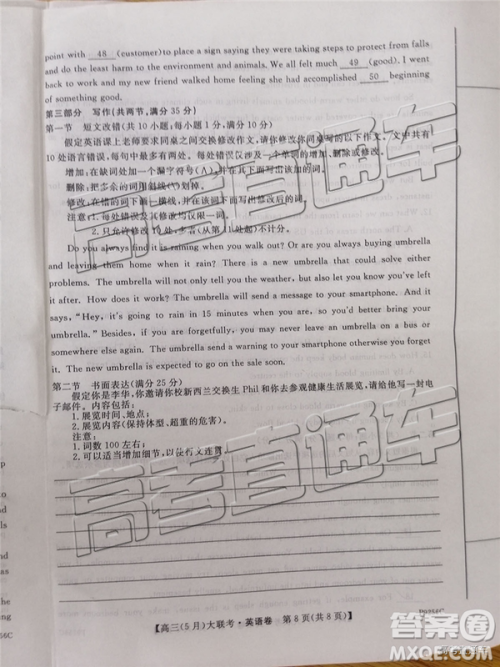 point with 48 (customer)to place a sign saying they were taking steps to protect from falls
and do the least harm to the environment and animals. We all felt much 49 (good). I went
back to work and my new friend walked home feeling she had accomplished 50 beginning
of something good.
第三部分 写作(共两节,满分 35 分)
第一节 短文改错(共 10 小题;每小题 1 分,满分 10 分)
假定英语课上老师要求同桌之间交换修改作文,请你修改你同桌写的以下作文。文中共有
10 处语言错误,每句中最多有两处。每处错误仅涉及一个单词的增加、删除或修改。
增加:在缺词处加一个漏字符号(∧),并在其下面写出该加的词。
删除:把多余的词用斜线(\)划掉。
修改:在错的词下画一横线,并在该词下面写出修改后的词。
注意:1.每处错误及其修改均仅限一词。
2.只允许修改 10 处,多者(从第 11 处起)不计分。
Do you always find it is raining when you walk out? Or are you always buying umbrella
and leaving them home when it rain? There is an umbrella designed to have solved either
problems. The umbrella will not only tell you the weather, but also let you know if you've left
it after. How does it work? The umbrella will send a message to your smartphone. And it
says, "Hey, it's going to rain in 15 minutes when you are going out, so you'd better bring
umbrella." Besides, if you are forgetfully, you may never leave your umbrella behind with the
use of the new umbrella. The umbrella send a warning to your smartphone otherwise you forget
it. The new umbrella is expected to go on the sale soon.
第二节 书面表达(满分 25 分)
假定你是李华,你邀请你校新西兰交换生 Phil 和你去参观健康生活展览,请给他写一封电
子邮件。内容包括:
1.展览时间、地点;
2.展览内容(保持体型、超重的危害)。
注意:
1.词数 100 左右;
2.可以适当增加细节,以使行文连贯。
高考直通车
高考直通车
【高三(5 月)大联考·英语卷 第 8 页(共 8 页)】
答案圈